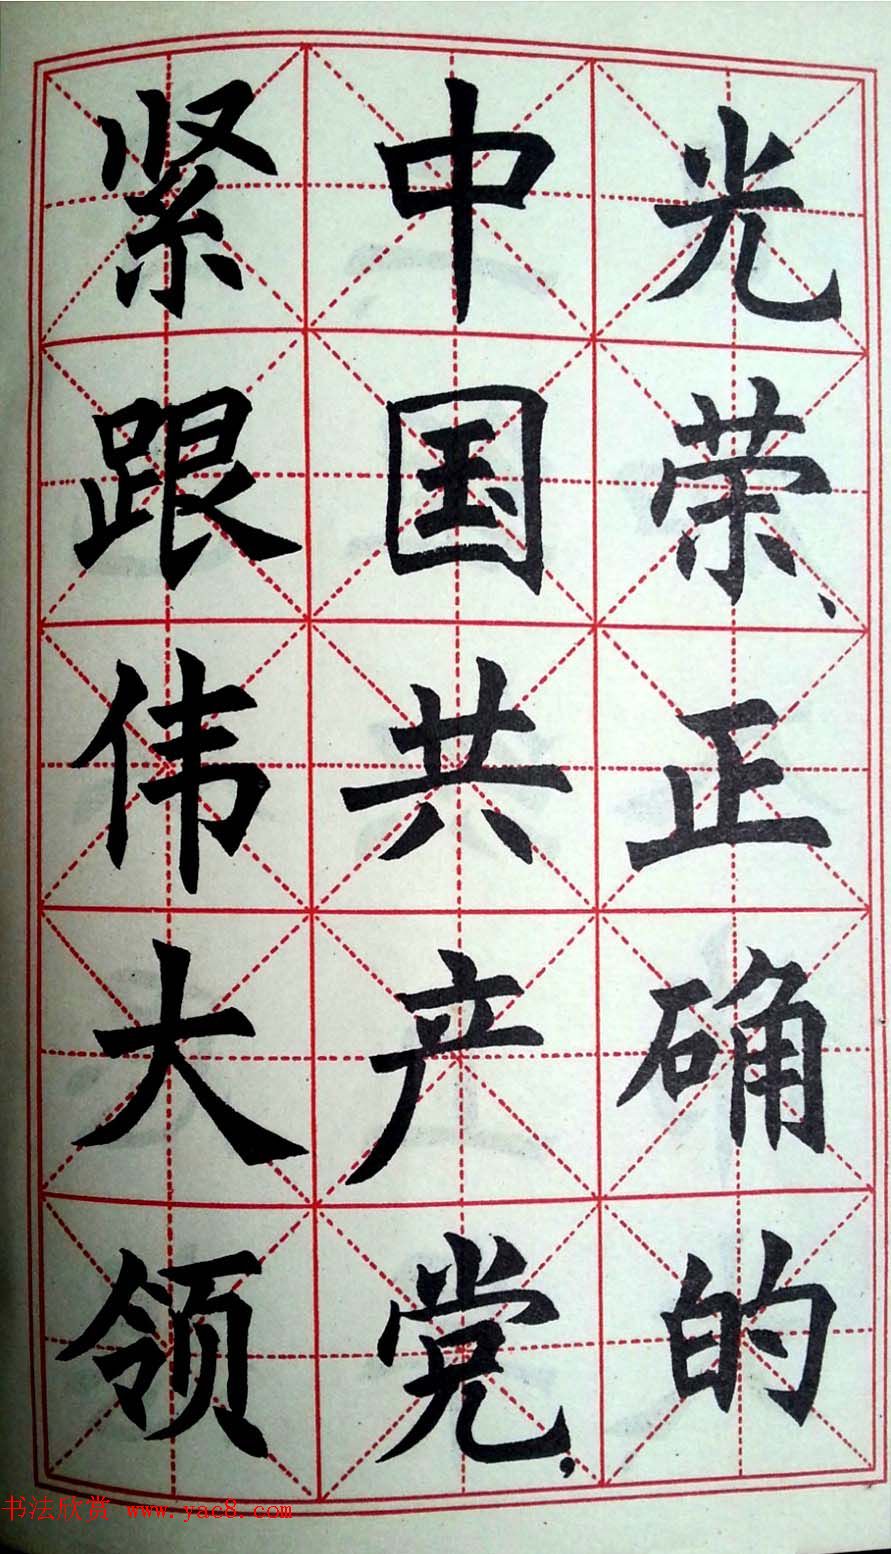 光荣、正确的
中国共产党，
紧跟伟大领
书法欣赏 www.yac8.com